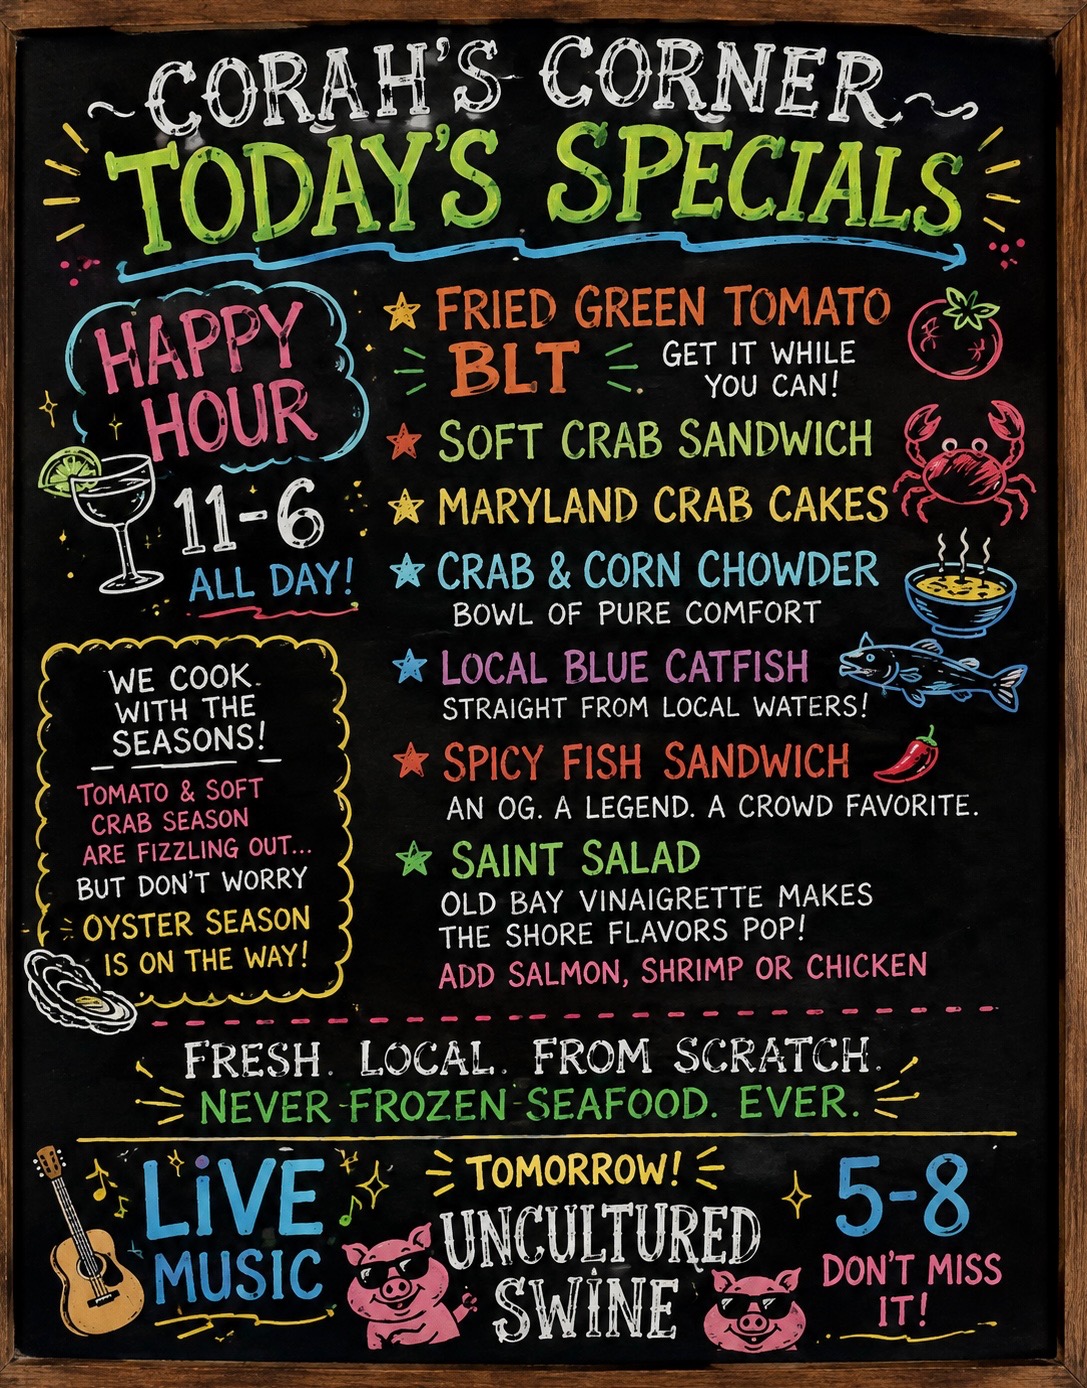 CORAH'S CORNER
TODAY'S SPECIALS
HAPPY
HOUR
11-6
ALL DAY!
WE COOK
WITH THE
SEASONS!
TOMATO & SOFT
CRAB SEASON
ARE FIZZLING OUT...
BUT DON'T WORRY
OYSTER SEASON
IS ON THE WAY!
FRIED GREEN TOMATO
BLT
GET IT WHILE
YOU CAN!
SOFT CRAB SANDWICH
MARYLAND CRAB CAKES
CRAB & CORN CHOWDER
BOWL OF PURE COMFORT
LOCAL BLUE CATFISH
STRAIGHT FROM LOCAL WATERS!
SPICY FISH SANDWICH
AN OG. A LEGEND. A CROWD FAVORITE.
SAINT SALAD
OLD BAY VINAIGRETTE MAKES
THE SHORE FLAVORS POP!
ADD SALMON, SHRIMP OR CHICKEN
FRESH. LOCAL. FROM SCRATCH.
NEVER-FROZEN SEAFOOD. EVER.
LiVE
MUSIC
TOMORROW!
UNCULTURED
SWiNE
5-8
DON'T MISS
IT!